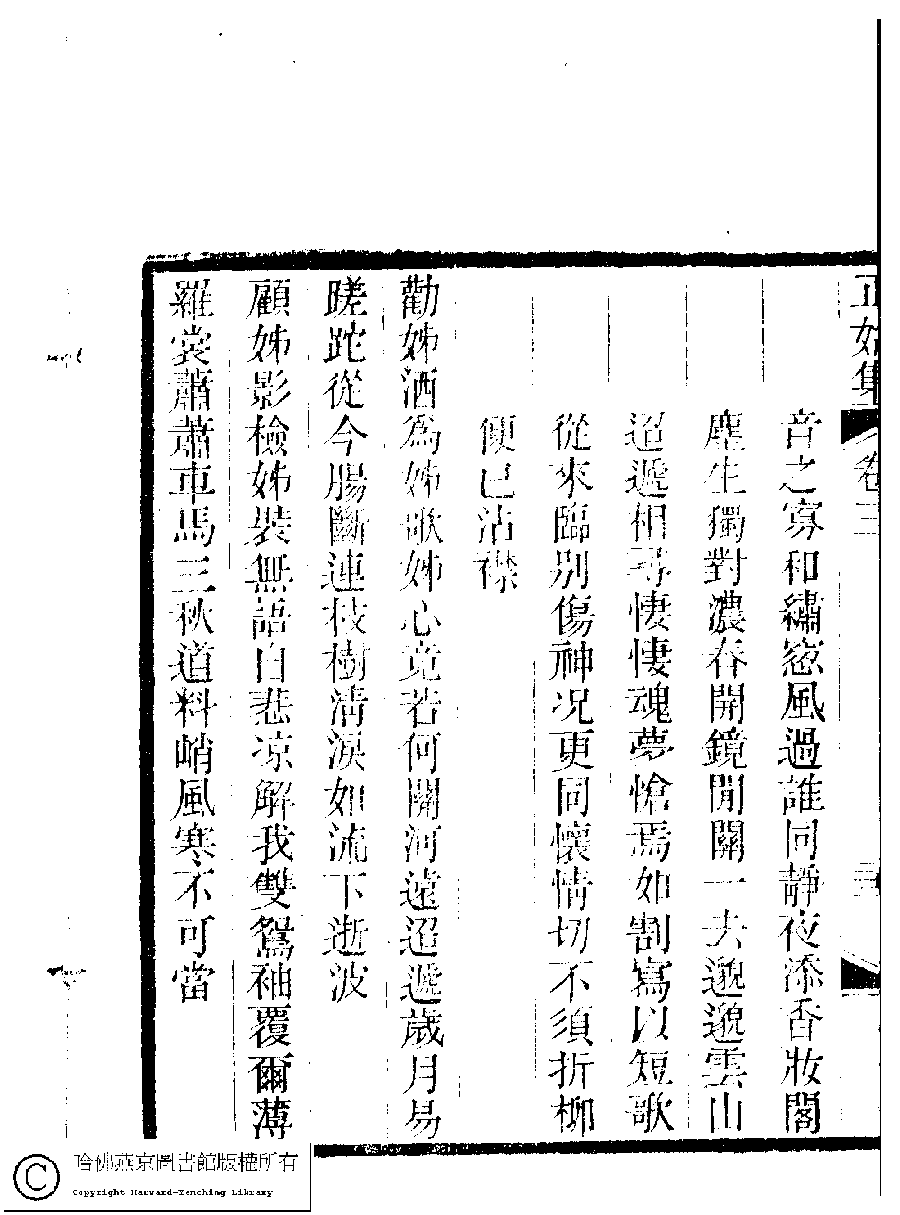 正始集 卷三 三
音之寡和繡窓風過誰同靜夜添香妝閣
塵生獨對濃春開鏡閒關一去邈邈雲山
迢遞相尋悽悽魂夢愴焉如割寫以短歌
從來臨別傷神况更同懷情切不須折柳
便已沾襟
勸姊酒爲姊歌姊心竟若何關河遠迢遞歲月易
蹉跎從今腸斷連枝樹清淚如流下逝波
顧姊影檢姊裝無語自悲凉解我雙鴛袖覆爾薄
羅裳蕭蕭車馬三秋道料峭風寒不可當
哈佛燕京圖書館版權所有
Copyright Harvard-Yenching Library